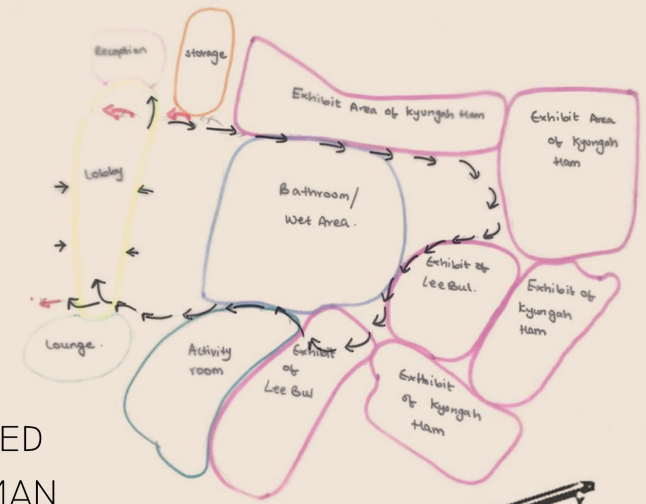 Reception
storage
Exhibit Area of Kyungah Ham
Exhibit Area
of Kyungah
Ham
Lobby
Bathroom/
Wet Area.
Exhibit of
Lee Bul.
Exhibit of
Kyungah
Ham
Lounge.
Activity
room
Exhibit
of
Lee Bul
Exhibit
of Kyungah
Ham
ED
MAN